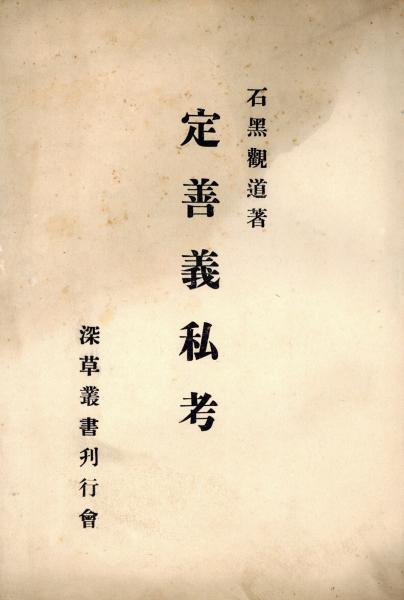 石黑觀道著
定善義私考
深草叢書刊行會